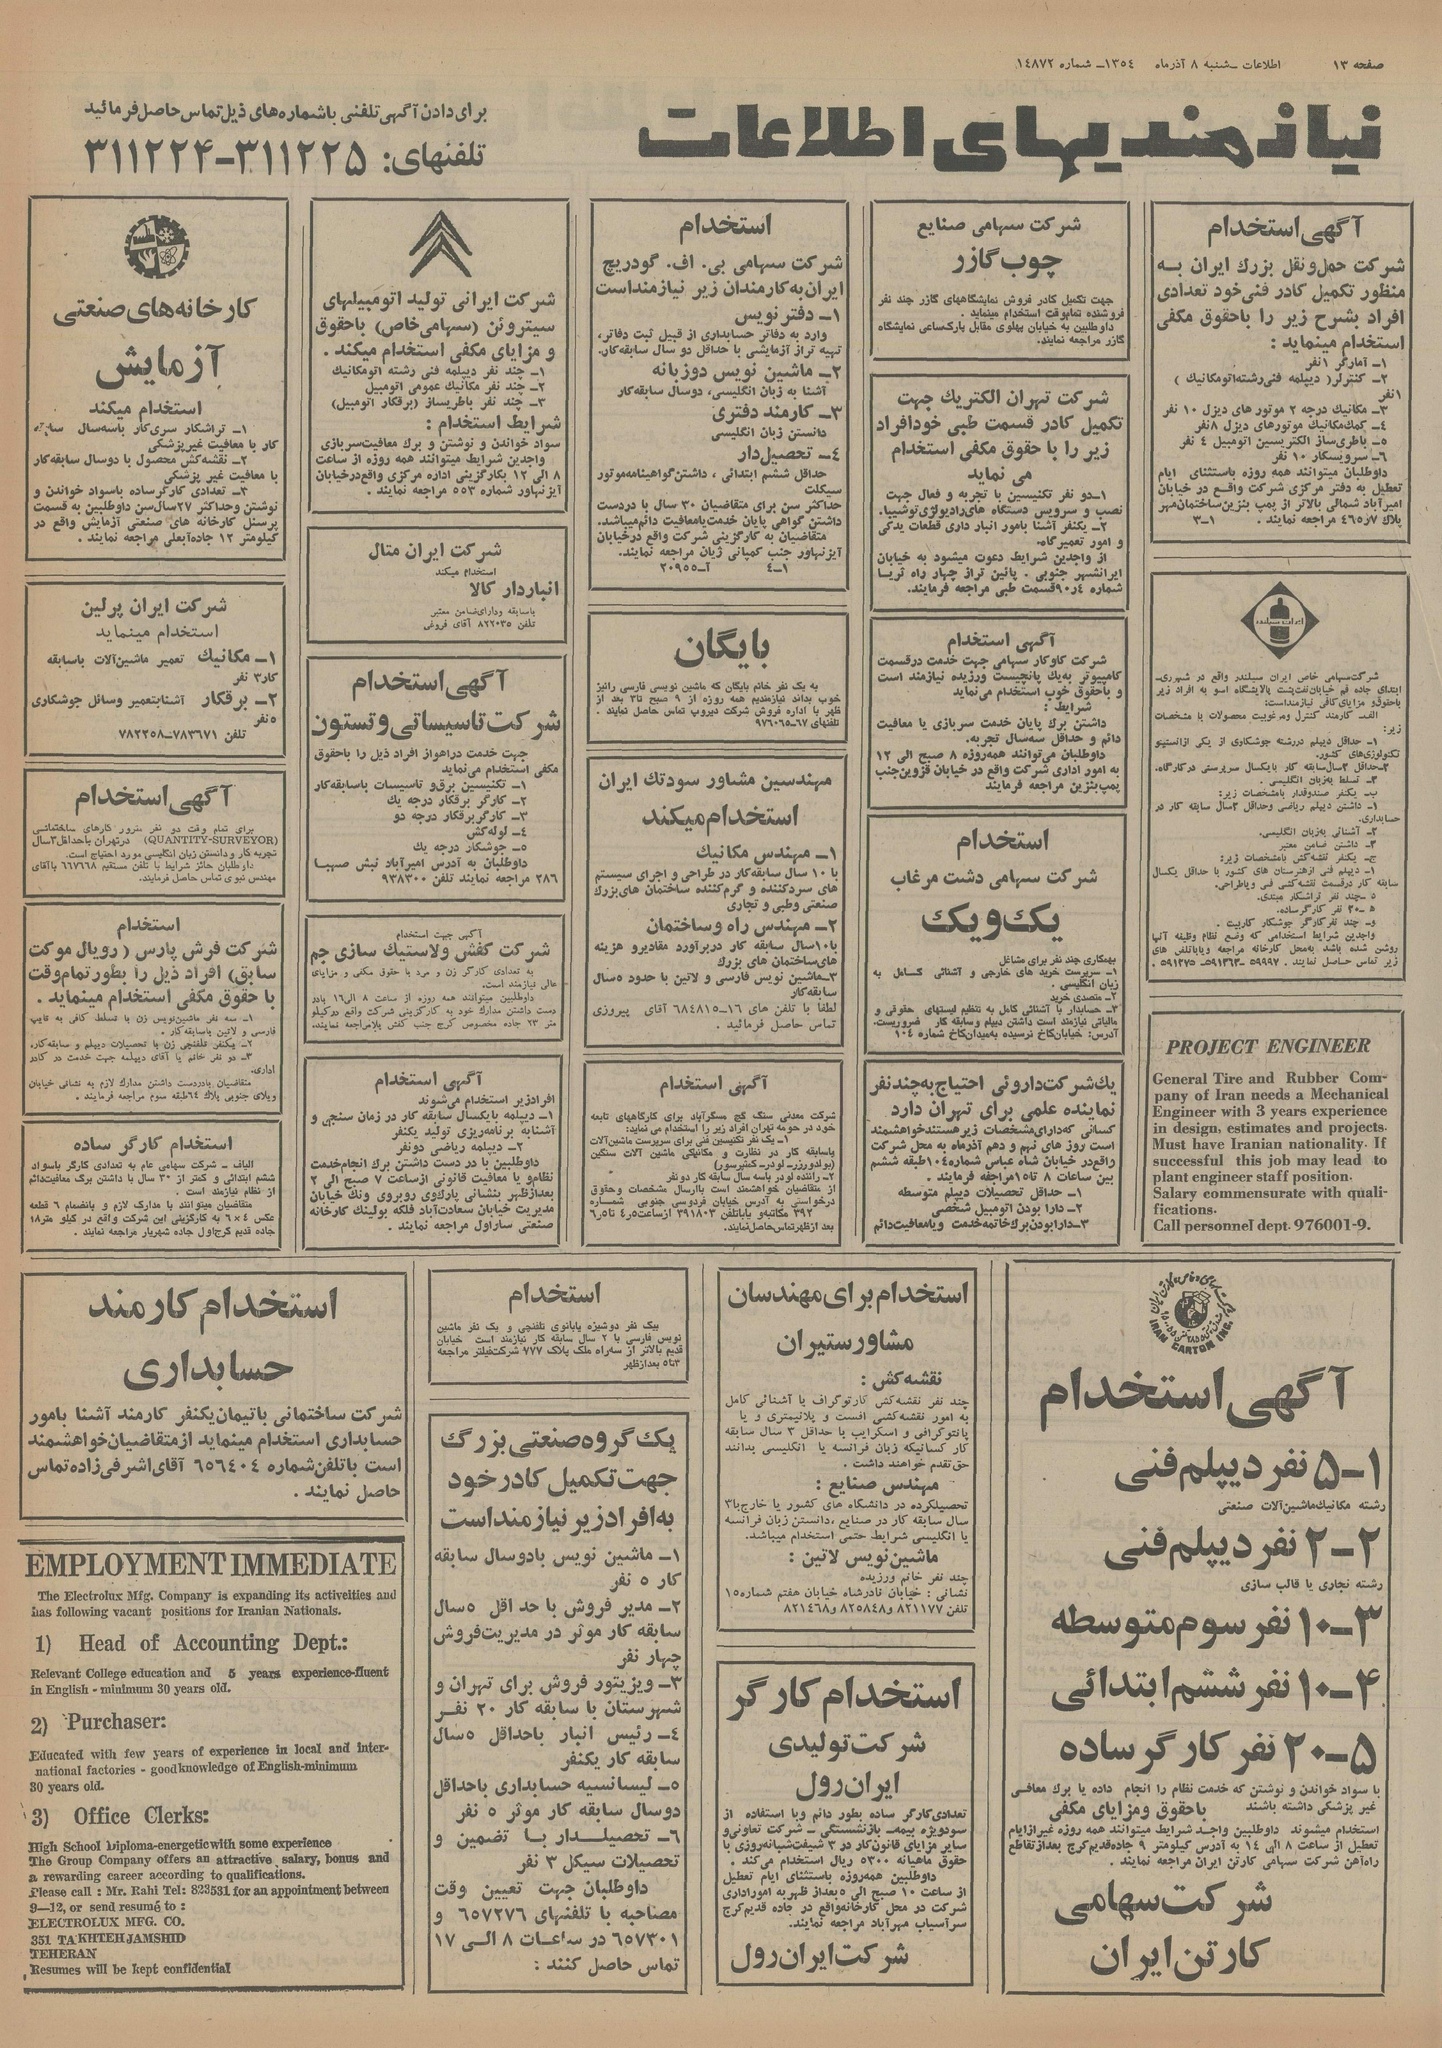 صفحه ۱۳ اطلاعات ـ شنبه ۸ آذرماه ۱۳٥٤ـ شماره ۱٤۸۷۲
نیازمندیهای اطلاعات
برای دادن آگهی تلفنی باشماره‌های ذیل تماس حاصل فرمائید
تلفنهای: ۳۱۱۲۲۵-۳۱۱۲۲۴
آگهی استخدام
شرکت حمل‌ونقل بزرك ایران به
منظور تکمیل کادر فنی‌خود تعدادی
افراد بشرح زیر را باحقوق مکفی
استخدام مینماید :
۱ـ آمارگر ۱نفر
۲ـ کنترلر( دیپلمه فنی‌رشته‌اتومکانیك )
۱نفر
۳ـ مکانیك درجه ۲ موتور های دیزل ۱۰ نفر
٤ـ کمك‌مکانیك موتورهای دیزل ۸نفر
۵ـ باطری‌ساز الکتریسین اتومبیل ٤ نفر
٦ـ سرویسکار ۱۰ نفر
داوطلبان میتوانند همه روزه باستثنای ایام
تعطیل به دفتر مرکزی شرکت واقع در خیابان
امیرآباد شمالی بالاتر از پمپ بنزین‌ساختمان‌مهر
پلاك ٤٦٥٫۷ مراجعه نمایند . ۱-۳
ایران سیلندر
شرکت‌سهامی خاص ایران سیلندر واقع در شهرری-
ابتدای جاده قم خیابان‌نفت‌پشت پالایشگاه اسو به افراد زیر
باحقوق و مزایای‌کافی نیازمنداست:
الف- کارمند کنترل ومرغوبیت محصولات با مشخصات
زیر:
۱ـ حداقل دیپلم دررشته جوشکاری از یکی ازانستیتو
تکنولوژی‌های کشور.
۲ـ‌حداقل ۲سال‌سابقه کار بایکسال سرپرستی درکارگاه.
۳ـ تسلط به‌زبان انگلیسی .
ب- یکنفر صندوقدار بامشخصات زیر:
۱ـ داشتن دیپلم ریاضی وحداقل ۲سال سابقه کار در
حسابداری.
۲ـ آشنائی به‌زبان انگلیسی.
۳ـ داشتن ضامن معتبر
ج- یکنفر نقشه‌کش بامشخصات زیر:
۱ـ دیپلم فنی ازهنرستان های کشور با حداقل یکسال
سابقه کار درقسمت نقشه‌کشی فنی وباطراحی.
د -چند نفر تراشکار مبتدی.
ه -۲۰ نفر کارگرساده.
و- چند نفرکارگر جوشکار کاربیت .
واجدین شرایط استخدامی که وضع نظام وظیفه آنها
روشن شده باشد به‌محل کارخانه مراجعه ویاباتلفن های
زیر تماس حاصل نمایند . ۵۹۹۹۷ـ ۵۹۱۳٦۳ـ ۵۹۱۲۷۵
PROJECT ENGINEER
General Tire and Rubber Com-
pany of Iran needs a Mechanical
Engineer with 3 years experience
in design, estimates and projects.
Must have Iranian nationality. If
successful this job may lead to
plant engineer staff position.
Salary commensurate with quali-
fications.
Call personnel dept. 976001-9.
شرکت سهامی صنایع
چوب گازر
جهت تکمیل کادر فروش نمایشگاههای گازر چند نفر
فروشنده تمام‌وقت استخدام مینماید .
داوطلبین به خیابان پهلوی مقابل پارك‌ساعی نمایشگاه
گازر مراجعه نمایند.
شرکت تهران الکتریك جهت
تکمیل کادر قسمت طبی خودافراد
زیر را با حقوق مکفی استخدام
می نماید
۱ـ دو نفر تکنیسین با تجربه و فعال جهت
نصب و سرویس دستگاه های‌رادیولوژی‌توشیبا.
۲ـ یکنفر آشنا بامور انبار داری قطعات یدکی
و امور تعمیرگاه.
از واجدین شرایط دعوت میشود به خیابان
ایرانشهر جنوبی . پائین تراز چهار راه ثریا
شماره ٤ر۹۰قسمت طبی مراجعه فرمایند.
آگهی استخدام
شرکت کاوکار سهامی جهت خدمت درقسمت
کامپیوتر به‌یك پانچیست ورزیده نیازمند است
و باحقوق خوب استخدام می‌نماید
شرایط :
داشتن برك پایان خدمت سربازی یا معافیت
دائم و حداقل سه‌سال تجربه.
داوطلبان می‌توانند همه‌روزه ۸ صبح الی ۱۲
به امور اداری شرکت واقع در خیابان قزوین‌جنب
پمپ‌بنزین مراجعه فرمایند
استخدام
شرکت سهامی دشت مرغاب
یك‌ویك
بهمکاری چند نفر برای مشاغل
۱ـ سرپرست خرید های خارجی و آشنائی کامل به
زبان انگلیسی .
۲ـ متصدی خرید
۳ـ حسابدار با آشنائی کامل به تنظیم لیستهای حقوقی و
مالیاتی نیازمند است داشتن دیپلم وسابقه کار ضروریست.
آدرس: خیابان‌کاخ نرسیده به‌میدان‌کاخ شماره ۱۰٤
یك‌شرکت‌داروئی احتیاج‌به‌چندنفر
نماینده علمی برای تهران دارد
کسانی که‌دارای‌مشخصات زیرهستندخواهشمند
است روز های نهم و دهم آذرماه به محل شرکت
واقع‌در خیابان شاه عباس شماره۱۰٤طبقه ششم
بین ساعات ۸ تا۱۵مراجعه فرمایند .
۱ـ حداقل تحصیلات دیپلم متوسطه
۲ـ دارا بودن اتومبیل شخصی
۳ـ دارابودن‌برك‌خاتمه‌خدمت ویامعافیت‌دائم
استخدام
شرکت سهامی بی. اف. گودریچ
ایران‌به‌کارمندان زیر نیازمنداست
۱ـ دفتر نویس
وارد به دفاتر حسابداری از قبیل ثبت دفاتر،
تهیه تراز آزمایشی با حداقل دو سال سابقه‌کار.
۲ـ ماشین نویس دوزبانه
آشنا به زبان انگلیسی، دوسال سابقه‌کار
۳ـ کارمند دفتری
دانستن زبان انگلیسی
٤ـ تحصیل‌دار
حداقل ششم ابتدائی ، داشتن‌گواهینامه‌موتور
سیکلت
حداکثر سن برای متقاضیان ۳۰ سال با دردست
داشتن گواهی پایان خدمت‌یامعافیت دائم‌میباشد.
متقاضیان به کارگزینی شرکت واقع درخیابان
آیزنهاور جنب کمپانی ژیان مراجعه نمایند.
۱-٤ آ-۲۰۹۵۵
بایگان
به یك نفر خانم بایگان که ماشین نویسی فارسی رانیز
خوب بداند نیازمندیم همه روزه از ۹ صبح تا۳ بعد از
ظهر با اداره فروش شرکت دیروپ تماس حاصل نمایند .
تلفنهای ٦۷-۹۷٦۰٦۵
مهندسین مشاور سودتك ایران
استخدام میکند
۱ـ مهندس مکانیك
با ۱۰ سال سابقه‌کار در طراحی و اجرای سیستم
های سردکننده و گرم‌کننده ساختمان های‌بزرك
صنعتی وطبی و تجاری
۲ـ مهندس راه وساختمان
با۱۰سال سابقه کار دربرآورد مقادیرو هزینه
های‌ساختمان های بزرك
۳ـماشین نویس فارسی و لاتین با حدود ۵سال
سابقه‌کار
لطفا با تلفن های ۱٦ـ٦۸٤۸۱۵ آقای پیروزی
تماس حاصل فرمائید .
آگهی استخدام
شرکت معدنی سنگ گچ مسگرآباد برای کارگاههای تابعه
خود در حومه تهران افراد زیر را استخدام می نماید:
۱ـ یك نفر تکنیسین فنی برای سرپرست ماشین‌آلات
باسابقه کار در نظارت و مکانیکی ماشین آلات سنگین
(بولدوزر- لودر- کمپرسور)
۲ـ راننده لودر باسه سال سابقه کار دو نفر
از متقاضیان خواهشمند است باارسال مشخصات وحقوق
درخواستی به آدرس خیابان فردوسی جنوبی شماره
۳۹۲ مکاتبه‌و یاباتلفن ۳۹۱۸۰۳ ازساعت۵ر٤ تا۵ر٦
بعد ازظهرتماس‌حاصل‌نمایند.
شرکت ایرانی تولید اتومبیلهای
سیتروئن (سهامی‌خاص) باحقوق
و مزایای مکفی استخدام میکند .
۱ـ چند نفر دیپلمه فنی رشته اتومکانیك
۲ـ چند نفر مکانیك عمومی اتومبیل
۳ـ چند نفر باطریساز (برقکار اتومبیل)
شرایط استخدام :
سواد خواندن و نوشتن و برك معافیت‌سربازی
واجدین شرایط میتوانند همه روزه از ساعت
۸ الی ۱۲ بکارگزینی اداره مرکزی واقع‌درخیابان
آیزنهاور شماره ۵۵۳ مراجعه نمایند .
شرکت ایران متال
استخدام میکند
انباردار کالا
باسابقه ودارای‌ضامن معتبر
تلفن ۸۲۲۰۳۵ آقای فروغی
آگهی استخدام
شرکت تاسیساتی وتستون
جهت خدمت دراهواز افراد ذیل را باحقوق
مکفی استخدام می‌نماید
۱ـ تکنیسین برق‌و تاسیسات باسابقه‌کار
۲ـ کارگر برقکار درجه یك
۳ـ کارگربرقکار درجه دو
٤ـ لوله‌کش
۵ـ جوشکار درجه یك
داوطلبان به آدرس امیرآباد نبش صهبا
۲۸٦ مراجعه نمایند تلفن ۹۳۸۳۰۰
آگهی جهت استخدام
شرکت کفش ولاستیك سازی جم
به تعدادی کارگر زن و مرد با حقوق مکفی و مزایای
عالی نیازمند است.
داوطلبین میتوانند همه روزه از ساعت ۸ الی۱٦ بادر
دست داشتن مدارك خود به کارگزینی شرکت واقع دوکیلو
متر ۲۳ جاده مخصوص کرج جنب کفش بلامراجعه نمایند.
آگهی استخدام
افرادزیر استخدام می‌شوند
۱ـ دیپلمه بایکسال سابقه کار در زمان سنجی و
آشنابه برنامه‌ریزی تولید یکنفر
۲ـ دیپلمه ریاضی دونفر
داوطلبین با در دست داشتن برك انجام‌خدمت
نظام‌و یا معافیت قانونی ازساعت ۷ صبح الی ۲
بعدازظهر بنشانی پارك‌وی روبروی ونك خیابان
مدیریت خیابان سعادت‌آباد فلکه بولینگ کارخانه
صنعتی ساراول مراجعه نمایند .
کارخانه‌های صنعتی
آزمایش
استخدام میکند
۱ـ تراشکار سری‌کار باسه‌سال سابقه
کار با معافیت غیرپزشکی
۲ـ نقشه‌کش محصول با دوسال سابقه‌کار
با معافیت غیر پزشکی
۳ـ تعدادی کارگرساده باسواد خواندن و
نوشتن وحداکثر ۲۷سال‌سن داوطلبین به قسمت
پرسنل کارخانه های صنعتی آزمایش واقع در
کیلومتر ۱۲ جاده‌آبعلی مراجعه نمایند .
شرکت ایران پرلین
استخدام مینماید
۱ـ مکانیك تعمیر ماشین‌آلات باسابقه
کار۳ نفر
۲ـ برقکار آشنابتعمیر وسائل جوشکاری
۵نفر
تلفن ۷۸۳٦۷۱-۷۸۲۲۵۸
آگهی استخدام
برای تمام وقت دو نفر متره‌ور کارهای ساختمانی
(QUANTITY-SURVEYOR) درتهران باحداقل۳سال
تجربه کار و دانستن زبان انگلیسی مورد احتیاج است.
داوطلبان حائز شرایط با تلفن مستقیم ٦٦۷٦٦۸ باآقای
مهندس نبوی تماس حاصل فرمایند.
استخدام
شرکت فرش پارس ( رویال موکت
سابق) افراد ذیل را بطور تمام‌وقت
با حقوق مکفی استخدام مینماید .
۱ـ سه نفر ماشین‌نویس زن با تسلط کافی به تایپ
فارسی و لاتین باسابقه‌کار .
۲ـ یکنفر تلفنچی زن با تحصیلات دیپلم و سابقه‌کار.
۳ـ دو نفر خانم یا آقای دیپلمه جهت خدمت در کادر
اداری.
متقاضیان بادردست داشتن مدارك لازم به نشانی خیابان
ویلای جنوبی پلاك ٦٤طبقه سوم مراجعه فرمایند .
استخدام کارگر ساده
الیاف - شرکت سهامی عام به تعدادی کارگر باسواد
ششم ابتدائی و کمتر از ۳۰ سال با داشتن برگ معافیت‌دائم
از نظام نیازمند است .
متقاضیان میتوانند با مدارك لازم و بانضمام ٦ قطعه
عکس ٤×٦ به کارگزینی این شرکت واقع در کیلو متر۱۸
جاده قدیم کرج‌اول جاده شهریار مراجعه نمایند .
IRAN CARTON INC.
آگهی استخدام
۱-۵ نفر دیپلم فنی
رشته مکانیك‌ماشین‌آلات صنعتی
۲-۲ نفر دیپلم فنی
رشته نجاری یا قالب سازی
۳-۱۰ نفر سوم متوسطه
۴-۱۰ نفر ششم ابتدائی
۵-۲۰ نفر کارگر ساده
با سواد خواندن و نوشتن که خدمت نظام را انجام داده یا برك معافی
غیر پزشکی داشته باشند باحقوق ومزایای مکفی
استخدام میشوند داوطلبین واجد شرایط میتوانند همه روزه غیرازایام
تعطیل از ساعت ۸ الی ۱٤ به آدرس کیلومتر ۹ جاده‌قدیم‌کرج بعدازتقاطع
راه‌آهن شرکت سهامی کارتن ایران مراجعه نمایند .
شرکت سهامی
کارتن ایران
استخدام برای مهندسان
مشاور ستیران
نقشه‌کش :
چند نفر نقشه‌کش کارتوگراف با آشنائی کامل
به امور نقشه‌کشی افست و پلانیمتری و یا
پانتوگرافی و اسکرایب با حداقل ۳ سال سابقه
کار کسانیکه زبان فرانسه یا انگلیسی بدانند
حق‌تقدم خواهند داشت .
مهندس صنایع :
تحصیلکرده در دانشگاه های کشور یا خارج‌با۳
سال سابقه کار در صنایع ،دانستن زبان فرانسه
یا انگلیسی شرایط حتمی استخدام میباشد.
ماشین نویس لاتین :
چند نفر خانم ورزیده
نشانی : خیابان نادرشاه خیابان هفتم شماره۱۵
تلفن ۸۲۱۱۷۷ و۸۲۵۸٤۸ و۸۲۱٤٦۸
استخدام کارگر
شرکت تولیدی
ایران رول
تعدادی‌کارگر ساده بطور دائم وبا استفاده از
سودویژه بیمه- بازنشستگی - شرکت تعاونی‌و
سایر مزایای قانون‌کار در ۳ شیفت‌شبانه‌روزی با
حقوق ماهیانه ۵۳۰۰ ریال استخدام می‌کند .
داوطلبین همه‌روزه باستثنای ایام تعطیل
از ساعت ۱۰ صبح الی ۵بعداز ظهربه اموراداری
شرکت در محل کارخانه‌واقع در جاده قدیم‌کرج
سرآسیاب مهرآباد مراجعه نمایند.
شرکت ایران رول
استخدام
بیك نفر دوشیزه یابانوی تلفنچی و یك نفر ماشین
نویس فارسی با ۲ سال سابقه کار نیازمند است خیابان
قدیم بالاتر از سه‌راه ملك پلاك ۷۷۷ شرکت‌فیلتر مراجعه
۳تا۵ بعدازظهر
یك گروه صنعتی بزرگ
جهت تکمیل کادر خود
به افراد زیر نیازمند است
۱ـ ماشین نویس بادوسال سابقه
کار ۵ نفر
۲ـ مدیر فروش با حد اقل ۵سال
سابقه کار موثر در مدیریت‌فروش
چهار نفر
۳ـ ویزیتور فروش برای تهران و
شهرستان با سابقه کار ۲۰ نفر
٤ـ رئیس انبار باحداقل ۵سال
سابقه کار یکنفر
۵ـ لیسانسیه حسابداری باحداقل
دوسال سابقه کار موثر ۵ نفر
٦ـ تحصیلدار با تضمین و
تحصیلات سیکل ۳ نفر
داوطلبان جهت تعیین وقت
مصاحبه با تلفنهای ٦۵۷۲۷٦ و
٦۵۷۳۰۱ در ساعات ۸ الی ۱۷
تماس حاصل کنند :
استخدام کارمند
حسابداری
شرکت ساختمانی باتیمان یکنفر کارمند آشنا بامور
حسابداری استخدام مینماید از متقاضیان‌خواهشمند
است باتلفن‌شماره ٦۵٦٤۰٤ آقای‌اشرفی‌زاده‌تماس
حاصل نمایند .
EMPLOYMENT IMMEDIATE
The Electrolux Mfg. Company is expanding its activeities and
has following vacant positions for Iranian Nationals.
1) Head of Accounting Dept.:
Relevant College education and 5 years experience-fluent
in English - minimum 30 years old.
2) Purchaser:
Educated with few years of experience in local and inter-
national factories - good knowledge of English-minimum
30 years old.
3) Office Clerks:
High School Diploma-energetic with some experience
The Group Company offers an attractive salary, bonus and
a rewarding career according to qualifications.
Please call : Mr. Rahi Tel: 823531 for an appointment between
9—12, or send resumé to :
ELECTROLUX MFG. CO.
351 TAKHTEH JAMSHID
TEHERAN
Resumes will be kept confidential